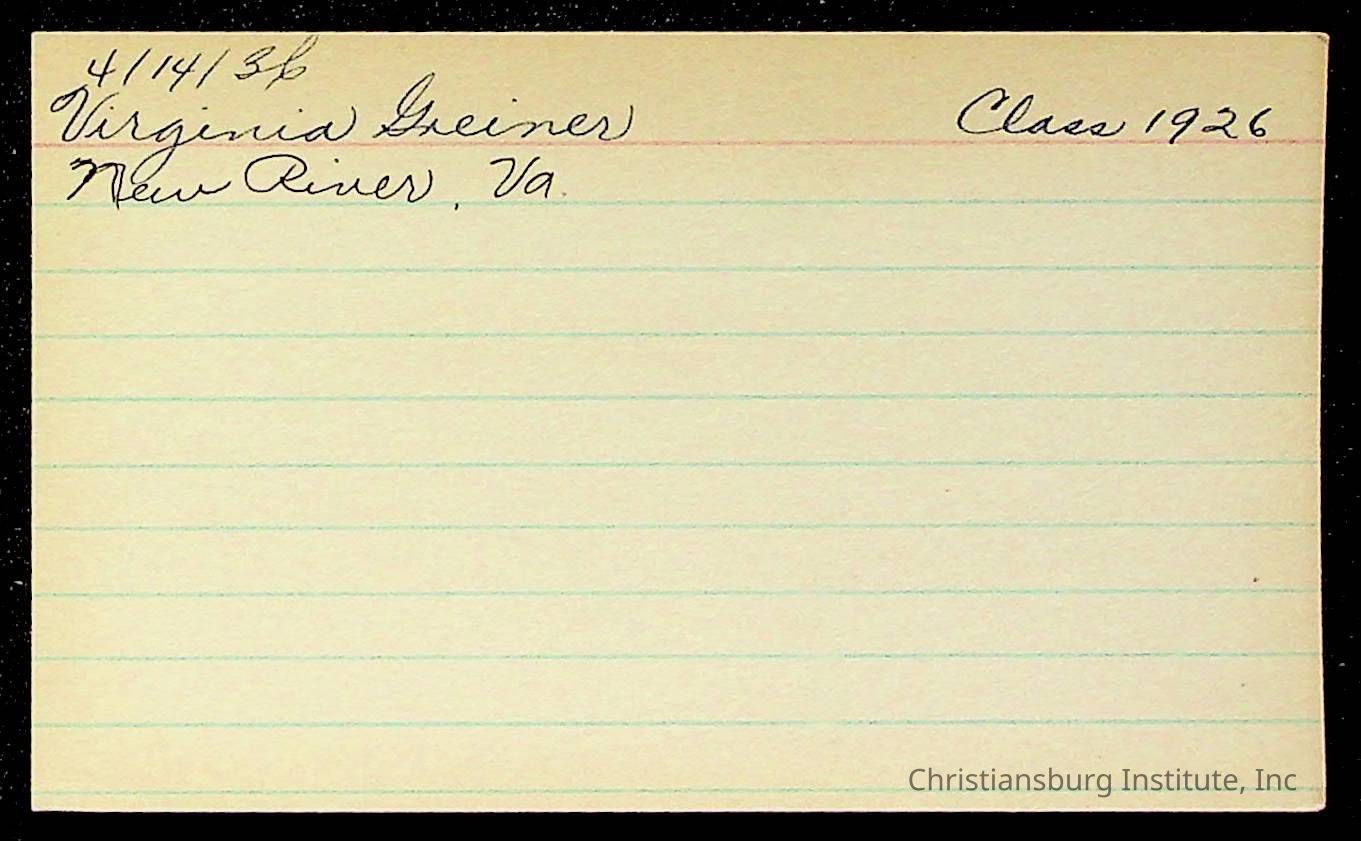 4/14/36
Virginia Greiner Class 1926
New River, Va.
Christiansburg Institute, Inc